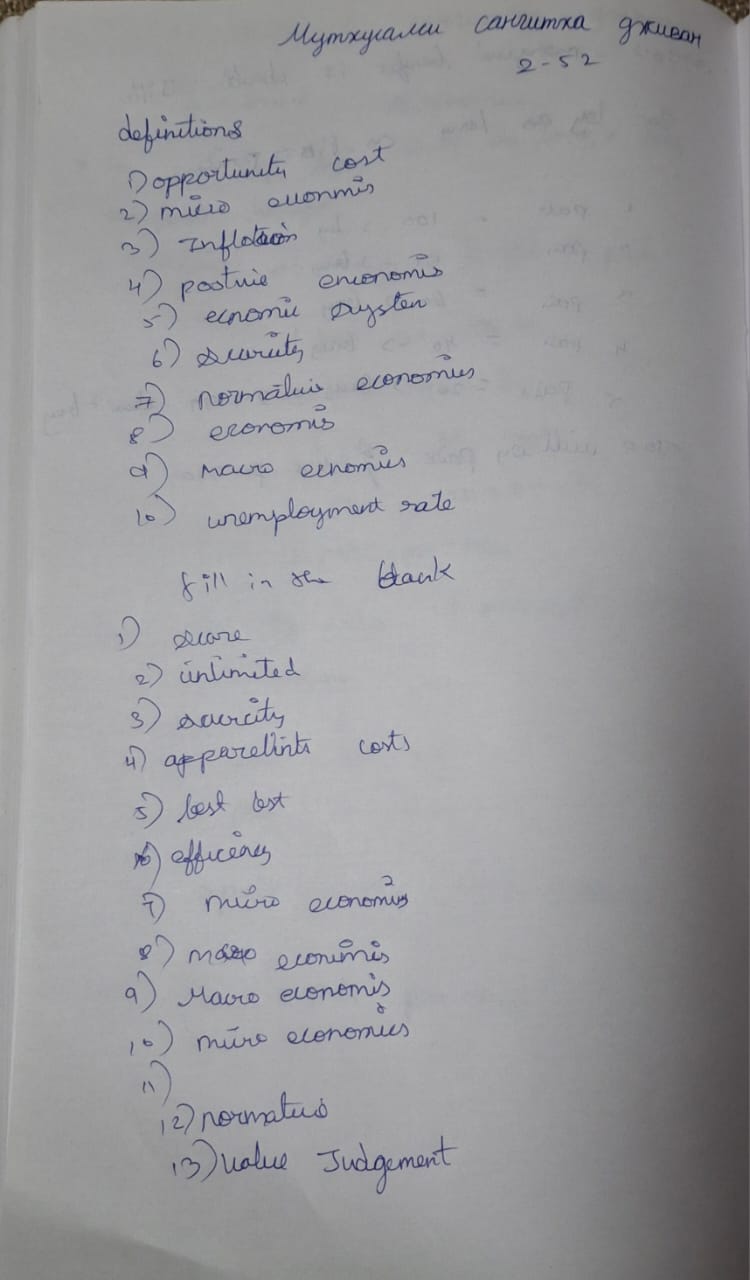 Мутхусами сангитха дживан
2-52
definitions
1) opportunity cost
2) micro euonmis
3) Inflation
4) postuie enconomis
5) ecnomic system
6) scurity
7) normatuie economics
8) economis
9) macro ecnomics
10) unemployment rate
fill in the blank
1) scare
2) unlimited
3) scarcity
4) costs
5) best
6) efficency
7) micro economics
8) macro econimis
9) Macro economis
10) micro economics
11)
12) normatus
13) value Judgement